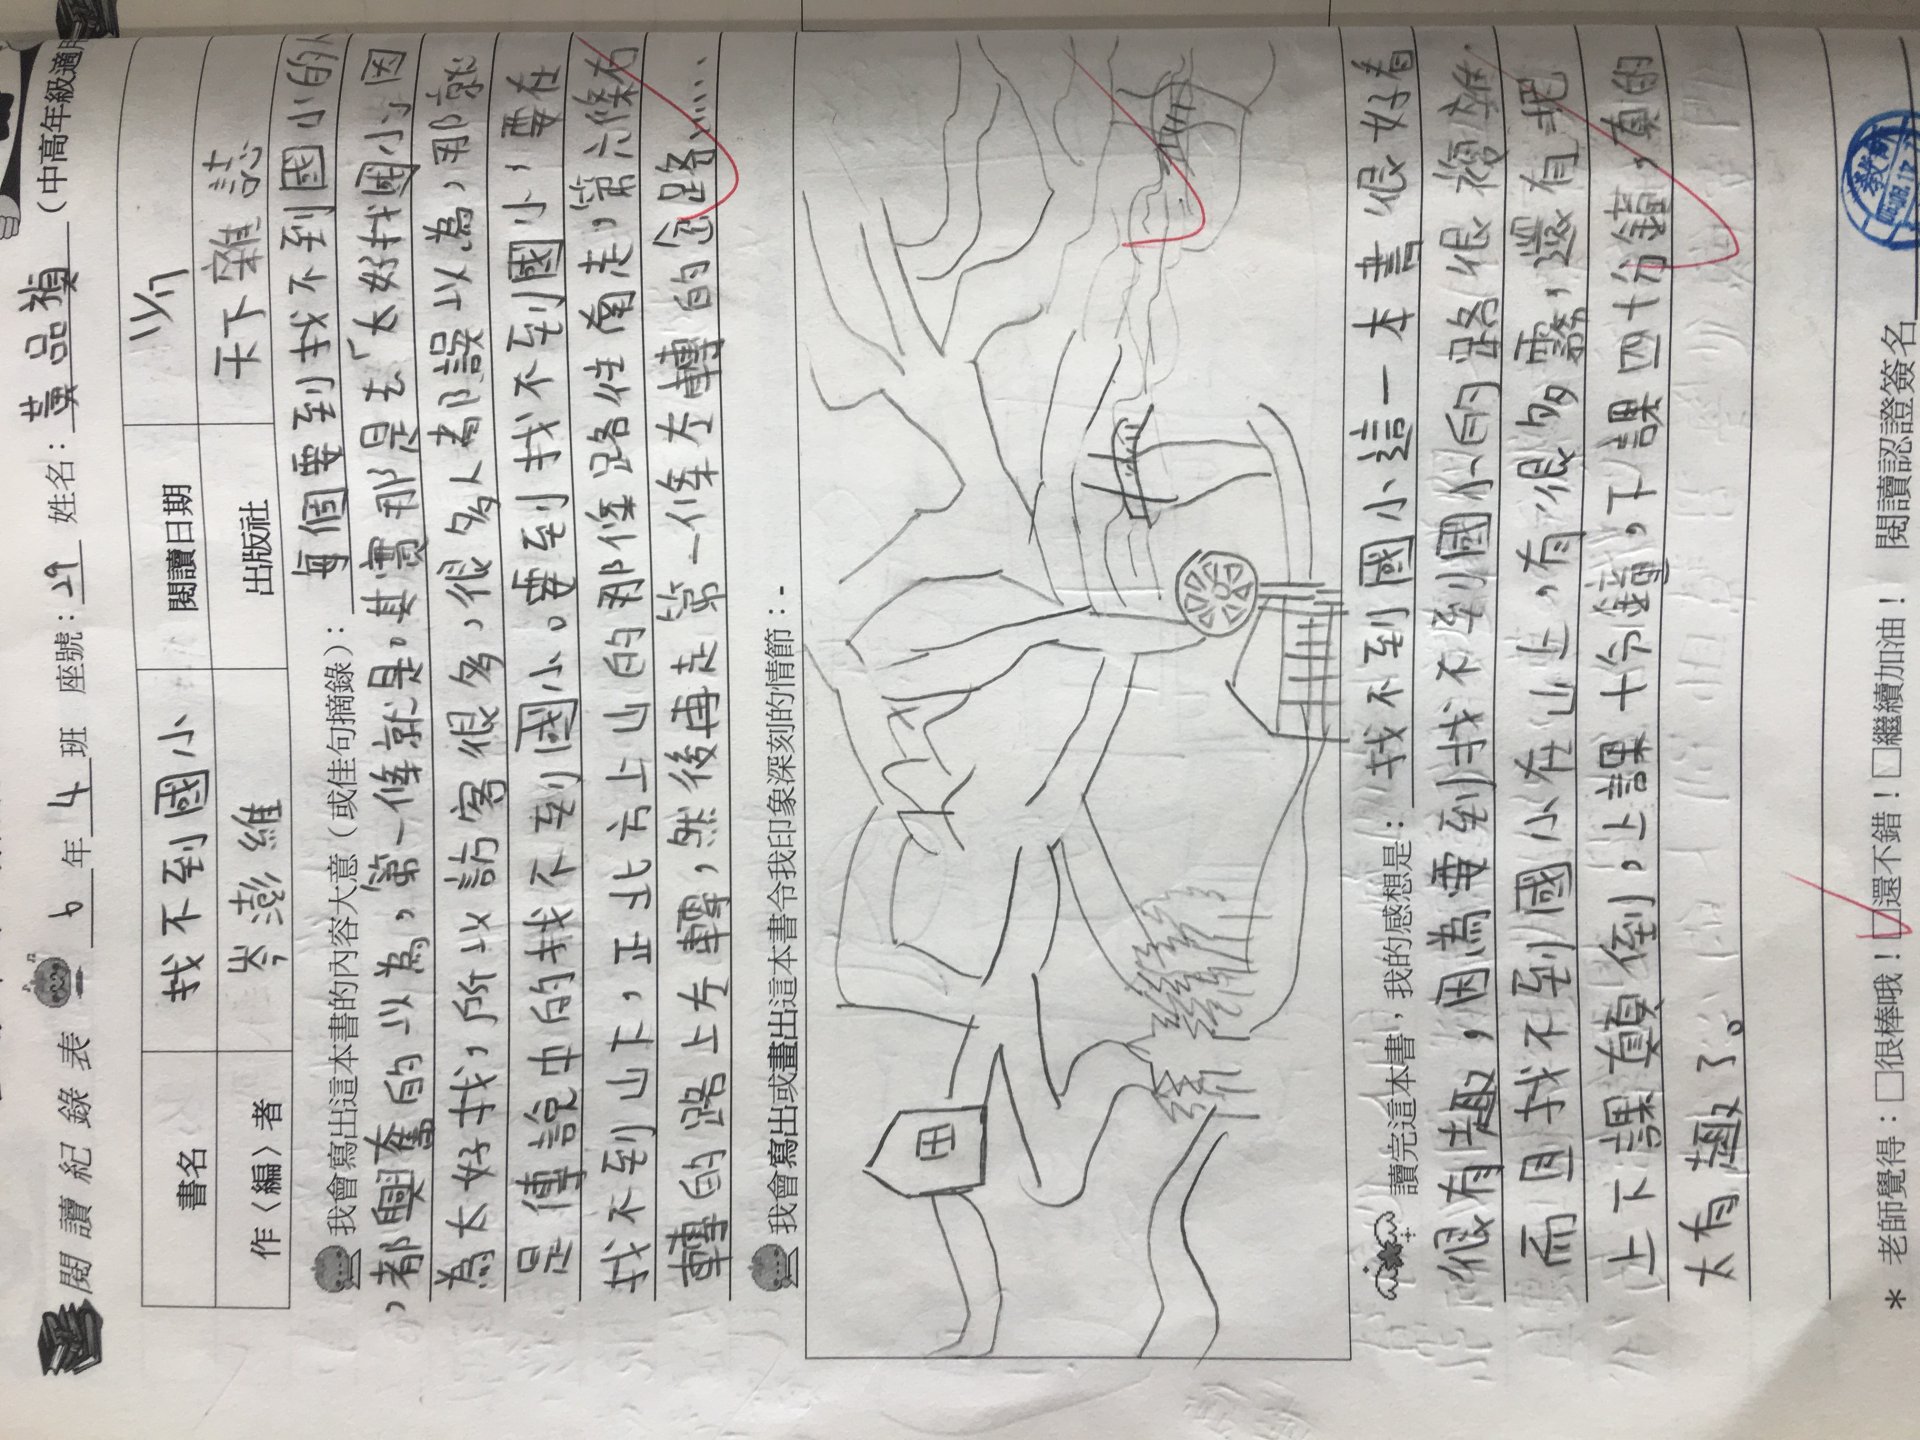 閱讀紀錄表 6年4班 座號：29 姓名：黃品禎（中高年級適用
書名 找不到國小 閱讀日期 11/7
作〈編〉者 岑澎維 出版社 天下雜誌
我會寫出這本書的內容大意（或佳句摘錄）： 每個要到找不到國小的人
，都興奮的以為，第一條就是。其實那是去「太好找國小」因
為太好找，所以訪客很多，很多人都誤以為，那就
是傳說中的找不到國小。要到找不到國小，要在
找不到山下，正北方上山的那條路往南走，第六條右
轉的路上左轉，然後再走第一條左轉的岔路……
我會寫出或畫出這本書令我印象深刻的情節：
田
讀完這本書，我的感想是： 找不到國小這一本書很好看
很有趣，因為要到找不到國小的路很複雜
而且找不到國小在山上，有很多霧，還有把
上下課顛倒，上課十分鐘，下課四十分鐘，真的
太有趣了。
* 老師覺得：□很棒哦！□還不錯！□繼續加油！ 閱讀認證簽名
教師